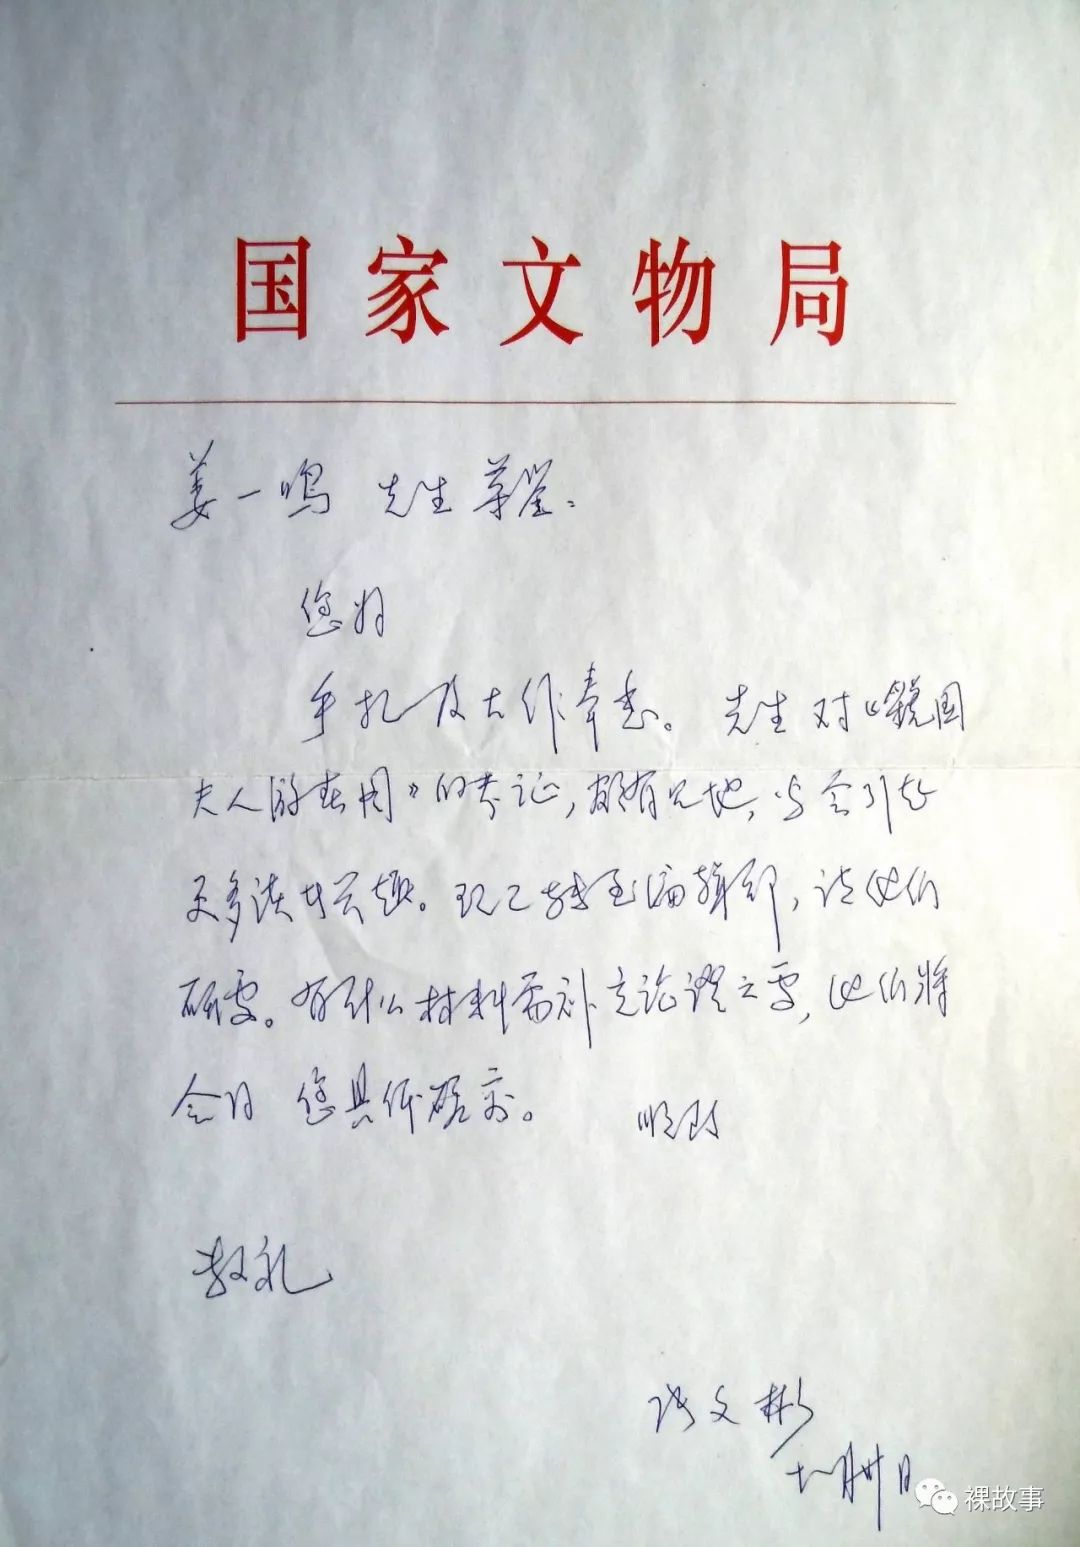 国家文物局
姜一鸣 先生草鉴:
您好
手扎及大作奉悉。 先生对《虢国
夫人游春图》的考证,颇有见地,当会引起
更多读者兴趣。现已转至编辑部,请他们
研处。有什么材料需补充论证之处,他们将
会同 您具体磋商。 顺致
敬礼
张文彬
十一月卅日
裸故事